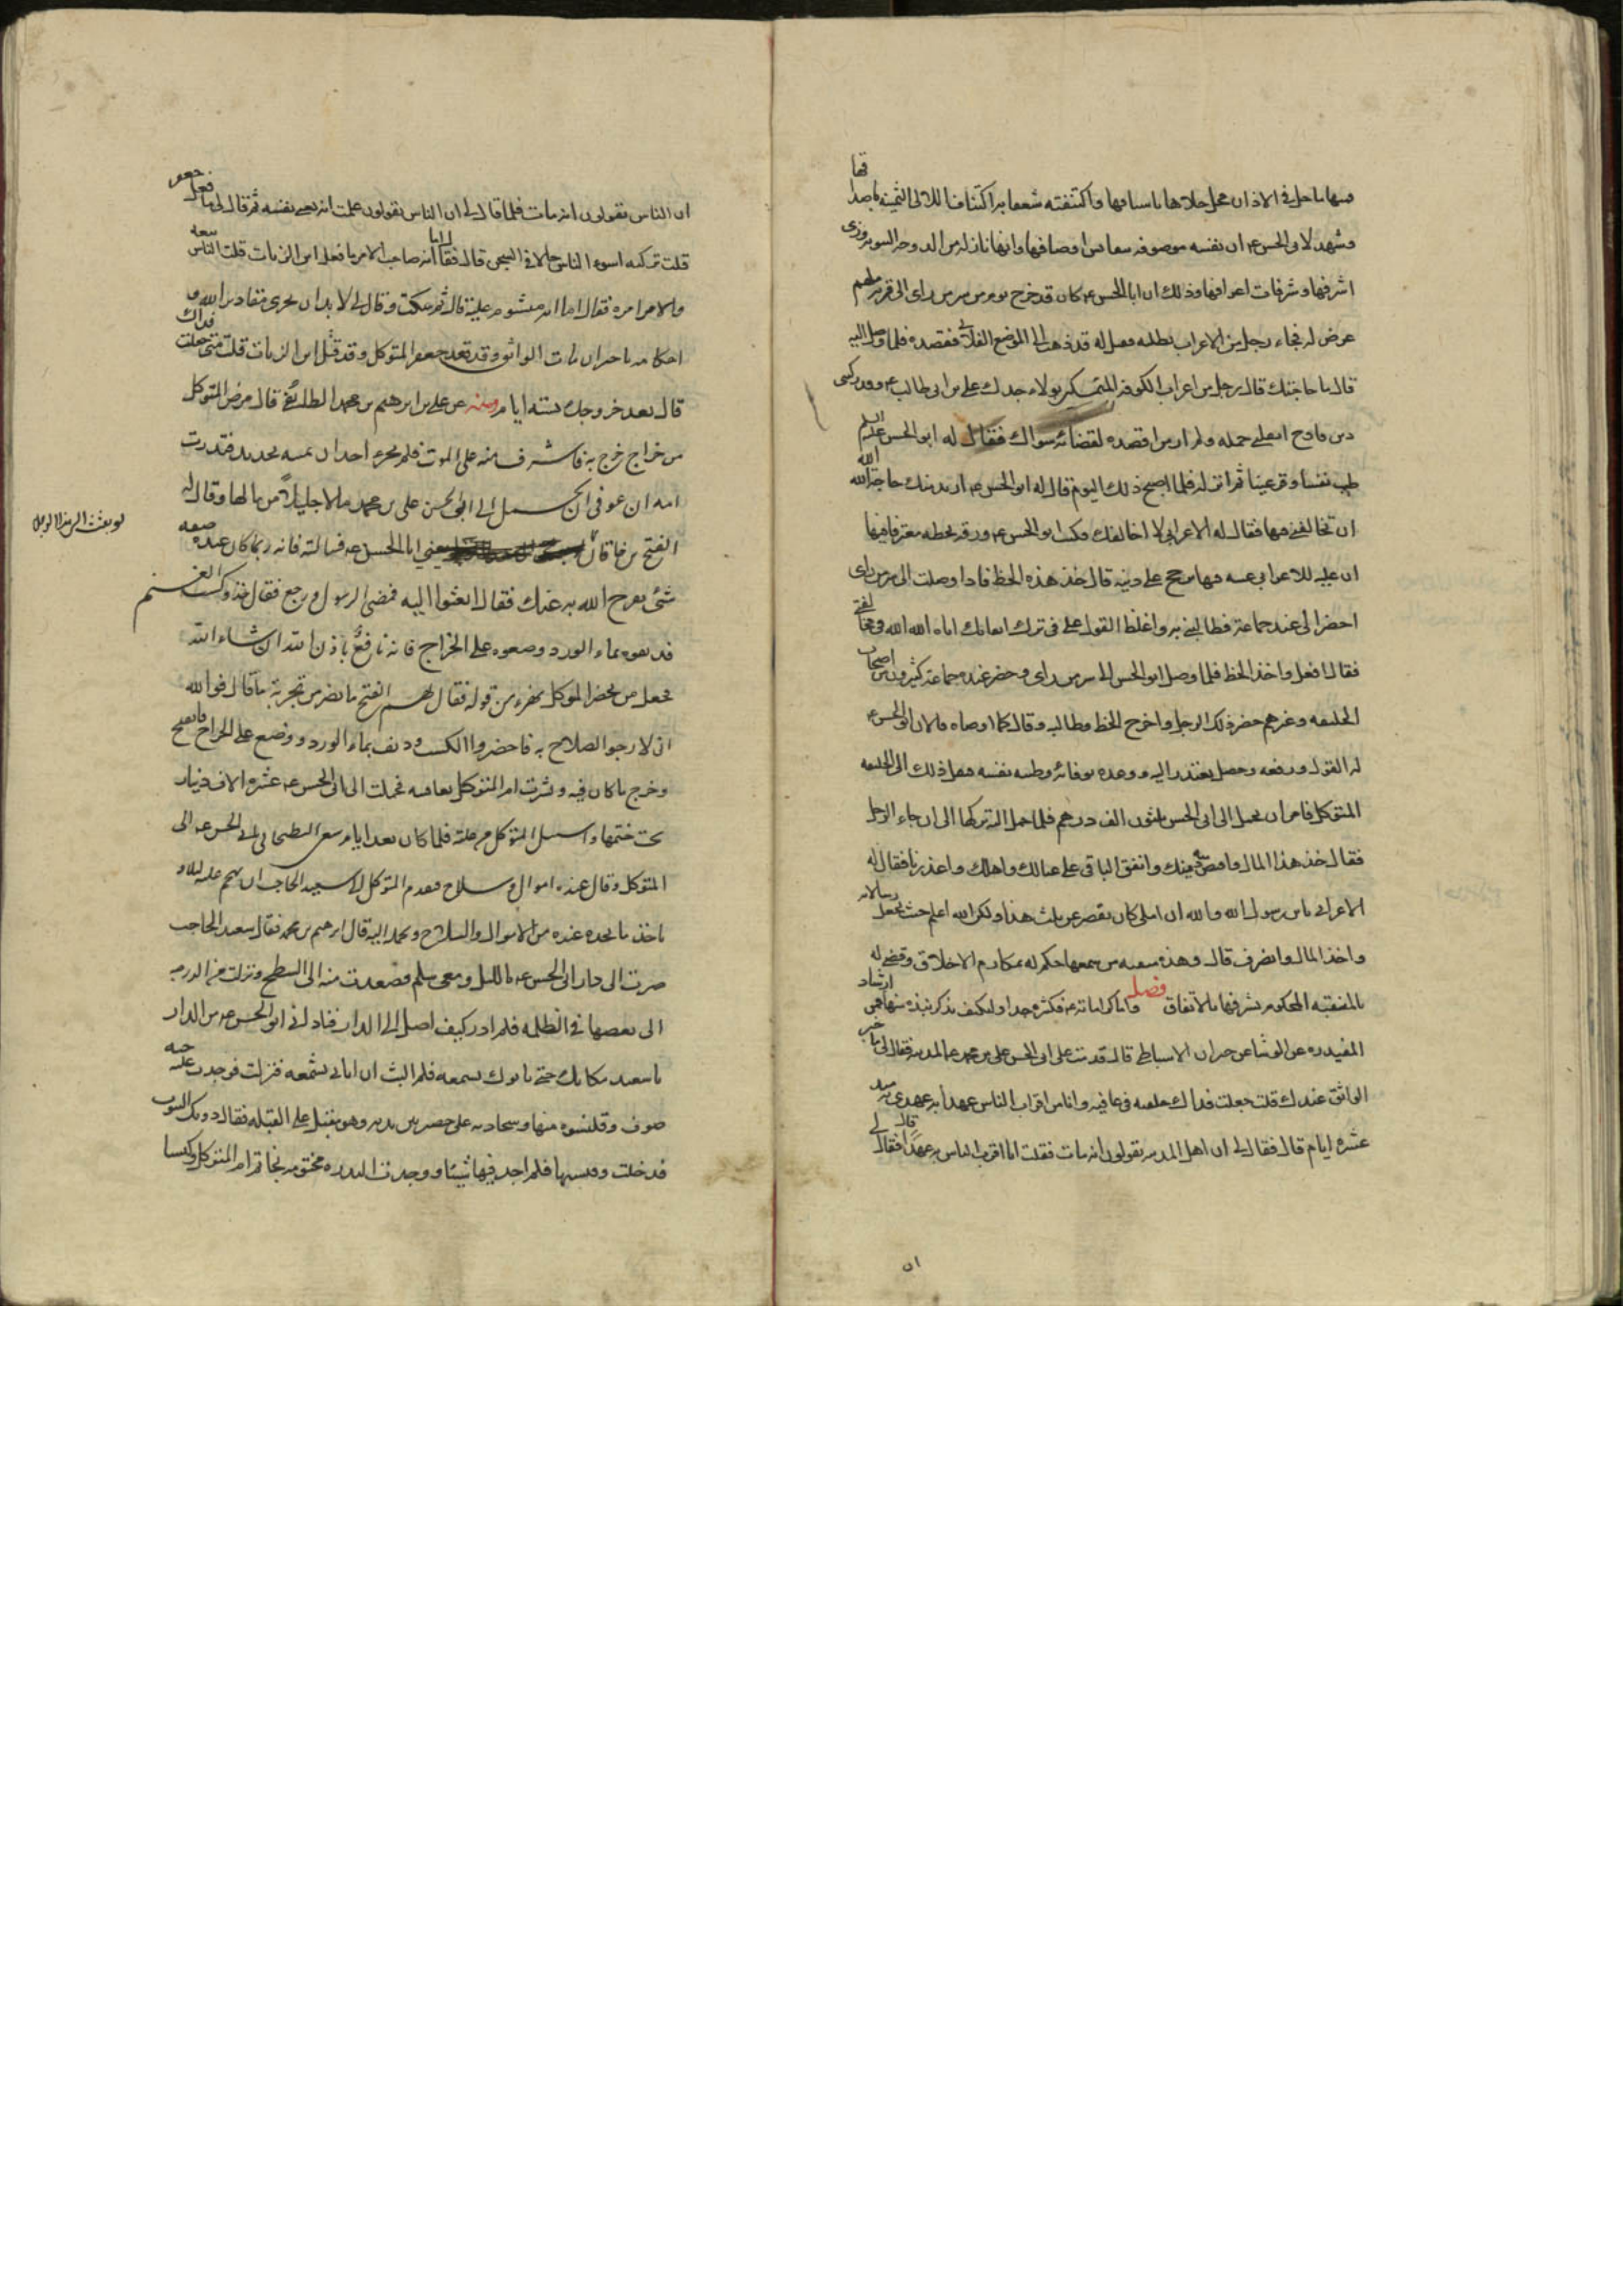 منها ما حل في الاذان محل حلاها باسنافها واكتنفته شغفا به اكتناف اللالى الثمينة باصدافها
وشهد لابى الحسن ع ان نفسه موصوفه بنفايس اوصافها وانها نازله من الدوحه النبويه ذرى
اشرافها وشرفات اعرافها وذلك ان ابا الحسن ع كان قد خرج يوما من سر من راى الى قرية لمهم
عرض له فجاء رجل من الاعراب يطلبه فقيل له قد ذهب الى الموضع الفلانى فقصده فلما وصل اليه
قال ما حاجتك قال رجل من اعراب الكوفه المتمسكين بولاء جدك على بن ابى طالب ع وقد ركبنى
دين فادح اثقلنى حمله ولم ار من اقصده لقضائه سواك فقال له ابو الحسن عليه السلم
طب نفسا وقر عينا ثم انزله فلما اصبح ذلك اليوم قال له ابو الحسن ع اريد منك حاجة الله الله
ان تخالفنى فيها فقال له الاعرابى لا اخالفك فكتب ابو الحسن ع ورقه بخطه معترفا فيها
ان عليه للاعرابى مالا عينه فيها يرجح على دينه قال خذ هذا الخط فاذا وصلت الى سر من راى
احضر الى عند جماعة فطالبنى به واغلظ القول على فى ترك ايفائك اياه الله الله فى مخالفتى
فقال افعل واخذ الخط فلما وصل ابو الحسن الى سر من راى وحضر عنده جماعة كثيرون من اصحاب
الخليفه وغيرهم حضر ذلك الرجل واخرج الخط وطالبه وقال كما اوصاه فالان ابو الحسن ع
له القول ورفقه وجعل يعتذر اليه ووعده بوفائه وطيبه نفسه فنقل ذلك الى الخليفه
المتوكل فامر ان يحمل الى ابى الحسن ثلثون الف درهم فلما حمل اليه تركها الى ان جاء الرجل
فقال خذ هذا المال فاقض منه دينك وانفق الباقى على عيالك واهلك واعذرنا فقال له
الاعرابى يا ابن رسول الله والله ان املى كان يقصر عن ثلث هذا ولكن الله اعلم حيث يجعل رسالاته
واخذ المال وانصرف قال وهذه منقبه من سمعها حكم له بمكارم الاخلاق وقضى له
بالمنقبه المحكوم بشرفها بالاتفاق فصل واما كراماته ع فكثيره جدا ولنكتف بذكر نبذه منها فمن ارشاد
المفيد ره عن الوشا عن خيران الاسباطى قال قدمت على ابى الحسن على بن محمد ع المدينه فقال لى ما خبر
الواثق عندك قلت جعلت فداك خلفته فى عافيه وانا من اقرب الناس عهدا به عهدى به منذ
عشره ايام قال فقال لى ان اهل المدينه يقولون انه مات فقلت انا اقرب الناس به عهدا فقال قال لى
ان
ان الناس يقولون انه مات فلما قال لى ان الناس يقولون علمت انه يعنى نفسه ثم قال لى ما فعل جعفر
قلت تركته اسوء الناس حالا فى السجن قال فقال اما انه صاحب الامر ما فعل ابن الزيات قلت الناس معه
والامر امره فقال اما انه مشئوم عليه قال ثم سكت وقال لى لا بد ان يجرى مقادير الله و
احكامه يا خيران مات الواثق وقد قعد جعفر المتوكل وقد قتل ابن الزيات قلت متى جعلت فداك
قال بعد خروجك بسته ايام ومنه عن على بن ابرهيم بن محمد الطائفى قال مرض المتوكل
من خراج خرج به فاشرف منه على الموت فلم يجرء احد ان يمسه بحديد فنذرت
امه ان عوفى ان يحمل الى ابى الحسن على بن محمد مالا جليلا من مالها وقال له
الفتح بن خاقان يعنى ابا الحسن ع فسالته فانه ربما كان عنده صفه
لو بعثت الى هذا الرجل
شئ يفرج الله به عنك فقال ابعثوا اليه فمضى الرسول ورجع فقال خذوا كسب الغنم
فديفوه بماء الورد وضعوه على الخراج فانه نافع باذن الله ان شاء الله
فجعل من بحضر المتوكل يهزء من قوله فقال لهم الفتح ما يضر من تجربة ما قال فوالله
انى لارجو الصلاح به فاحضروا الكسب وديف بماء الورد ووضع على الخراج فانفتح
وخرج ما كان فيه وبشرت ام المتوكل بعافيته فحملت الى ابى الحسن ع عشره الاف دينار
تحت ختمها واستبل المتوكل من علته فلما كان بعد ايام سعى البطحانى بابى الحسن ع الى
المتوكل وقال عنده اموال وسلاح فتقدم المتوكل الى سعيد الحاجب ان يهجم عليه ليلا و
ياخذ ما يجده عنده من الاموال والسلاح ويحمل اليه قال ابرهيم بن محمد فقال سعيد الحاجب
صرت الى دار ابى الحسن ع بالليل ومعى سلم فصعدت منه الى السطح ونزلت من الدرجه
الى بعضها فى الظلمه فلم ادر كيف اصل الى الدار فنادانى ابو الحسن ع من الدار
يا سعيد مكانك حتى ياتوك بشمعه فلم البث ان اتانى بشمعه فنزلت فوجدت عليه جبه
صوف وقلنسوه منها وسجادته على حصير بين يديه وهو مقبل على القبله فقال دونك البيوت
فدخلت وفتشتها فلم اجد فيها شيئا ووجدت البدره مختومه بخاتم ام المتوكل وكيسا